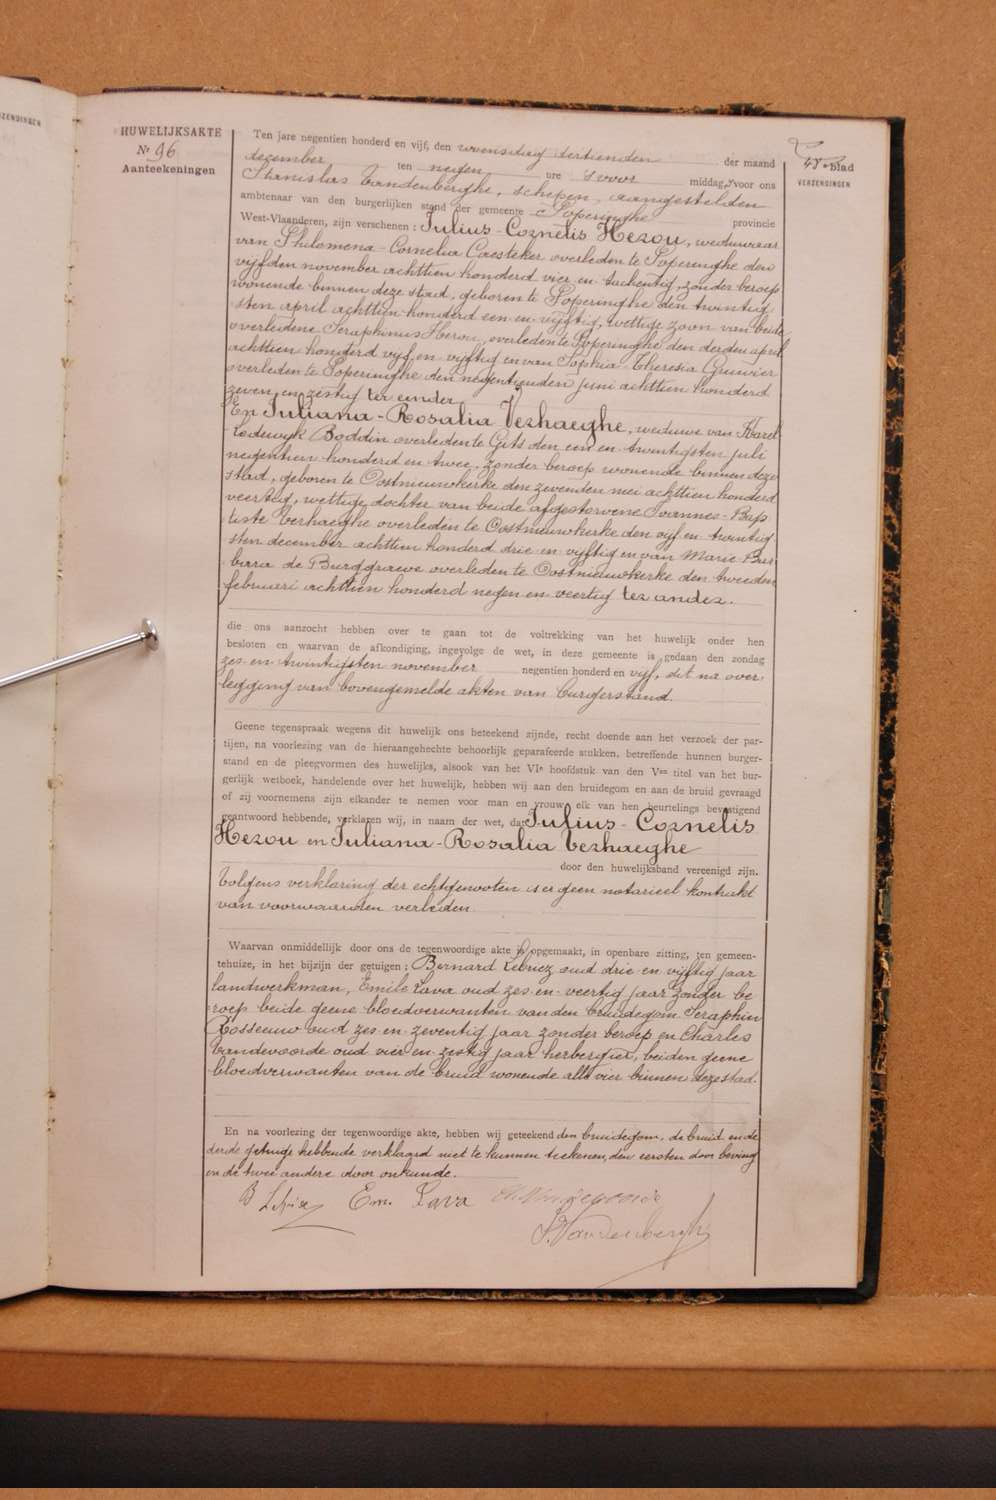 ZENDINGEN
HUWELIJKSAKTE
Nr 96
Aanteekeningen
49e blad
VERZENDINGEN
Ten jare negentien honderd en vijf, den woensdag dertienden der maand
december ten negen ure 's voor middag, voor ons
Stanislas Vandenberghe, schepen, aangestelden
ambtenaar van den burgerlijken stand der gemeente Poperinghe provincie
West-Vlaanderen, zijn verschenen : Julius-Cornelis Herou, weduwaar
van Philomena-Cornelia Caesteker overleden te Poperinghe den
vijfden november achttien honderd vier en tachentig, zonder beroep
wonende binnen deze stad, geboren te Poperinghe den twintig
sten april achttien honderd een en vijftig, wettige zoon van beide
overledene Seraphinus Herou, overleden te Poperinghe den derden april
achttien honderd vijf en vijftig en van Sophia-Theresia Gruwier
overleden te Poperinghe den negentienden juni achttien honderd
zeven en zestig ter eender
En Juliana-Rosalia Verhaeghe, weduwe van Karel
Lodewyk Boddin overleden te Gits den een en twintigsten juli
negentien honderd en twee, zonder beroep wonende binnen deze
stad, geboren te Oostnieuwkerke den zevenden mei achttien honderd
veertig, wettige dochter van beide afgestorvene Joannes-Bap
tiste Verhaeghe overleden te Oostnieuwkerke den vijf en twintig
sten december achttien honderd drie en vijftig en van Marie-Bar
bara de Burggraeve overleden te Oostnieuwkerke den tweeden
februari achttien honderd negen en veertig ter ander.
die ons aanzocht hebben over te gaan tot de voltrekking van het huwelijk onder hen
besloten en waarvan de afkondiging, ingevolge de wet, in deze gemeente is gedaan den zondag
zes en twintigsten november negentien honderd en vijf, dit na over
legging van bovengemelde akten van burgerstand.
Geene tegenspraak wegens dit huwelijk ons beteekend zijnde, recht doende aan het verzoek der par-
tijen, na voorlezing van de hieraangehechte behoorlijk geparafeerde stukken, betreffende hunnen burger-
stand en de pleegvormen des huwelijks, alsook van het VIe hoofdstuk van den Ven titel van het bur-
gerlijk wetboek, handelende over het huwelijk, hebben wij aan den bruidegom en aan de bruid gevraagd
of zij voornemens zijn elkander te nemen voor man en vrouw, elk van hen beurtelings bevestigend
geantwoord hebbende, verklaren wij, in naam der wet, dat Julius-Cornelis
Herou en Juliana-Rosalia Verhaeghe
door den huwelijksband vereenigd zijn.
Volgens verklaring der echtgenooten is er geen notarieel kontrakt
van voorwaarden verleden
Waarvan onmiddellijk door ons de tegenwoordige akte is opgemaakt, in openbare zitting, ten gemeen-
tehuize, in het bijzijn der getuigen : Bernard oud drie en vijftig jaar
landwerkman, Emile Lava oud zes en veertig jaar zonder be
roep beide geene bloedverwanten van den bruidegom Seraphin
Rosseeuw oud zes en zeventig jaar zonder beroep en Charles
Vandevoorde oud vier en zestig jaar herbergier, beiden geene
bloedverwanten van de bruid wonende alle vier binnen deze stad.
En na voorlezing der tegenwoordige akte, hebben wij geteekend den bruidegom, de bruid en de
derde getuige hebbende verklaard niet te kunnen teekenen, den eersten door beving
en de twee andere door onkunde.
Em. Lava
S. Vandenberghe